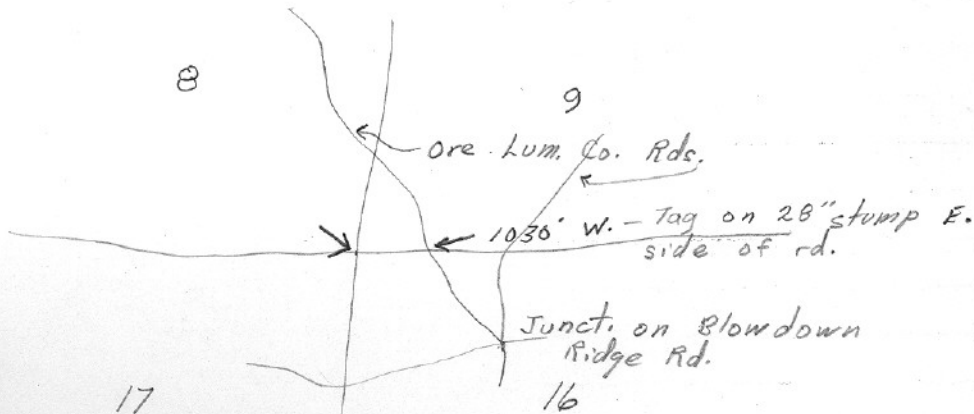 8
9
Ore. Lum. Co. Rds.
1030' W. — Tag on 28" stump E.
side of rd.
Junct. on Blowdown
Ridge Rd.
17
16